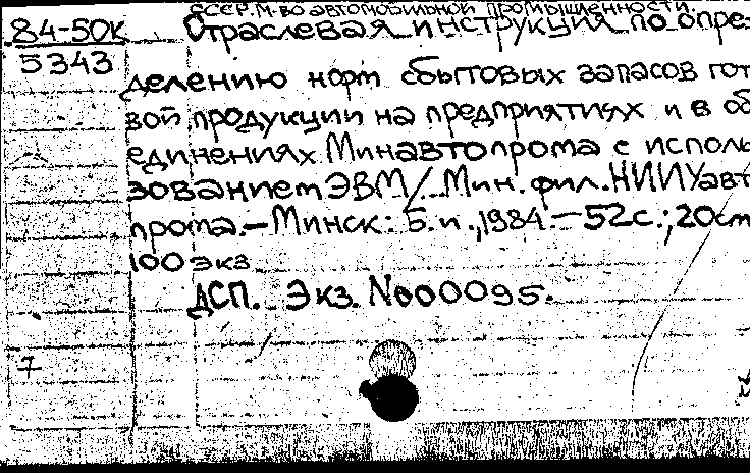 СССР. М-во автомобильной промышленности.
84-50К
5343
Отраслевая инструкция по опре-
делению норм сбытовых запасов гото
вой продукции на предприятиях и в об
единениях Минавтопрома с исполь
зованием ЭВМ/ Мин. фил. НИИУавт
прома. – Минск: Б. и., 1984. – 52 с.; 20 см
100 экз
ДСП. Экз. №000095.
7